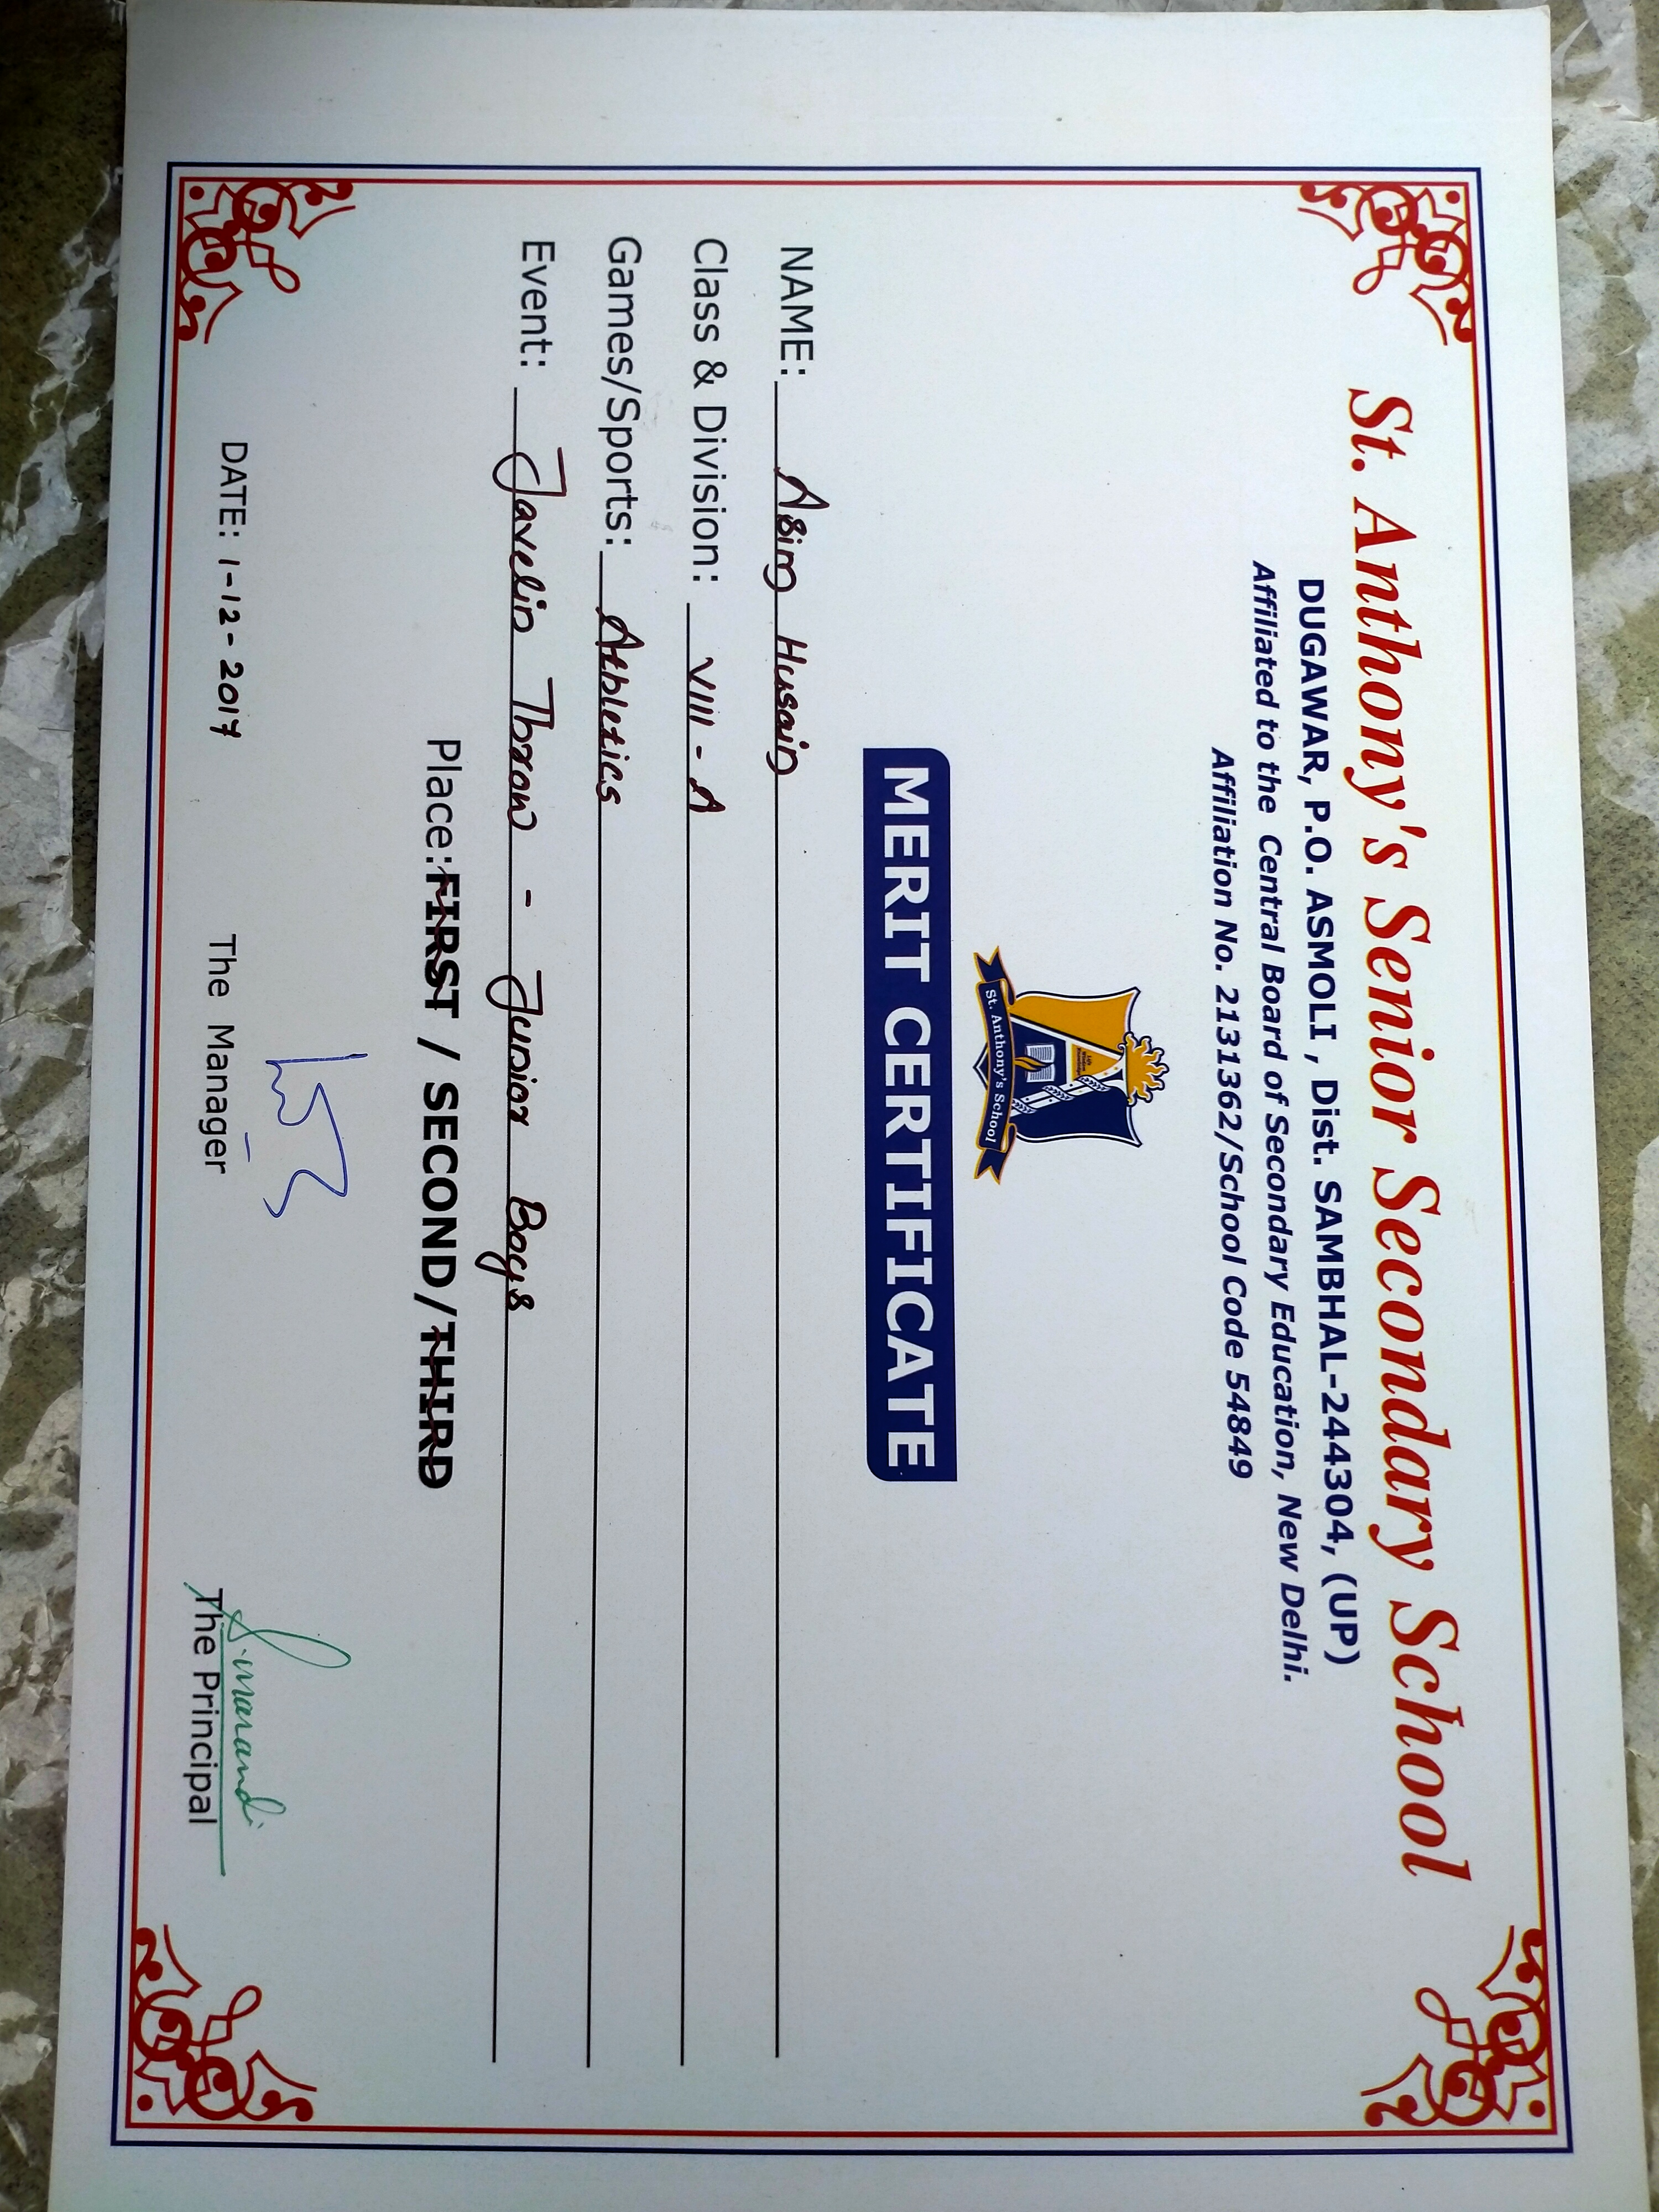 St. Anthony's Senior Secondary School
DUGAWAR, P.O. ASMOLI , Dist. SAMBHAL-244304, (UP)
Affiliated to the Central Board of Secondary Education, New Delhi.
Affiliation No. 2131362/School Code 54849
Life
Wisdom
Knowledge
St. Anthony's School
MERIT CERTIFICATE
NAME: Asim Husain
Class & Division: VIII - A
Games/Sports: Athletics
Event: Javelin Throw - Junior Boys
Place: FIRST / SECOND/THIRD
S. marandi
DATE: 1-12-2017 The Manager The Principal